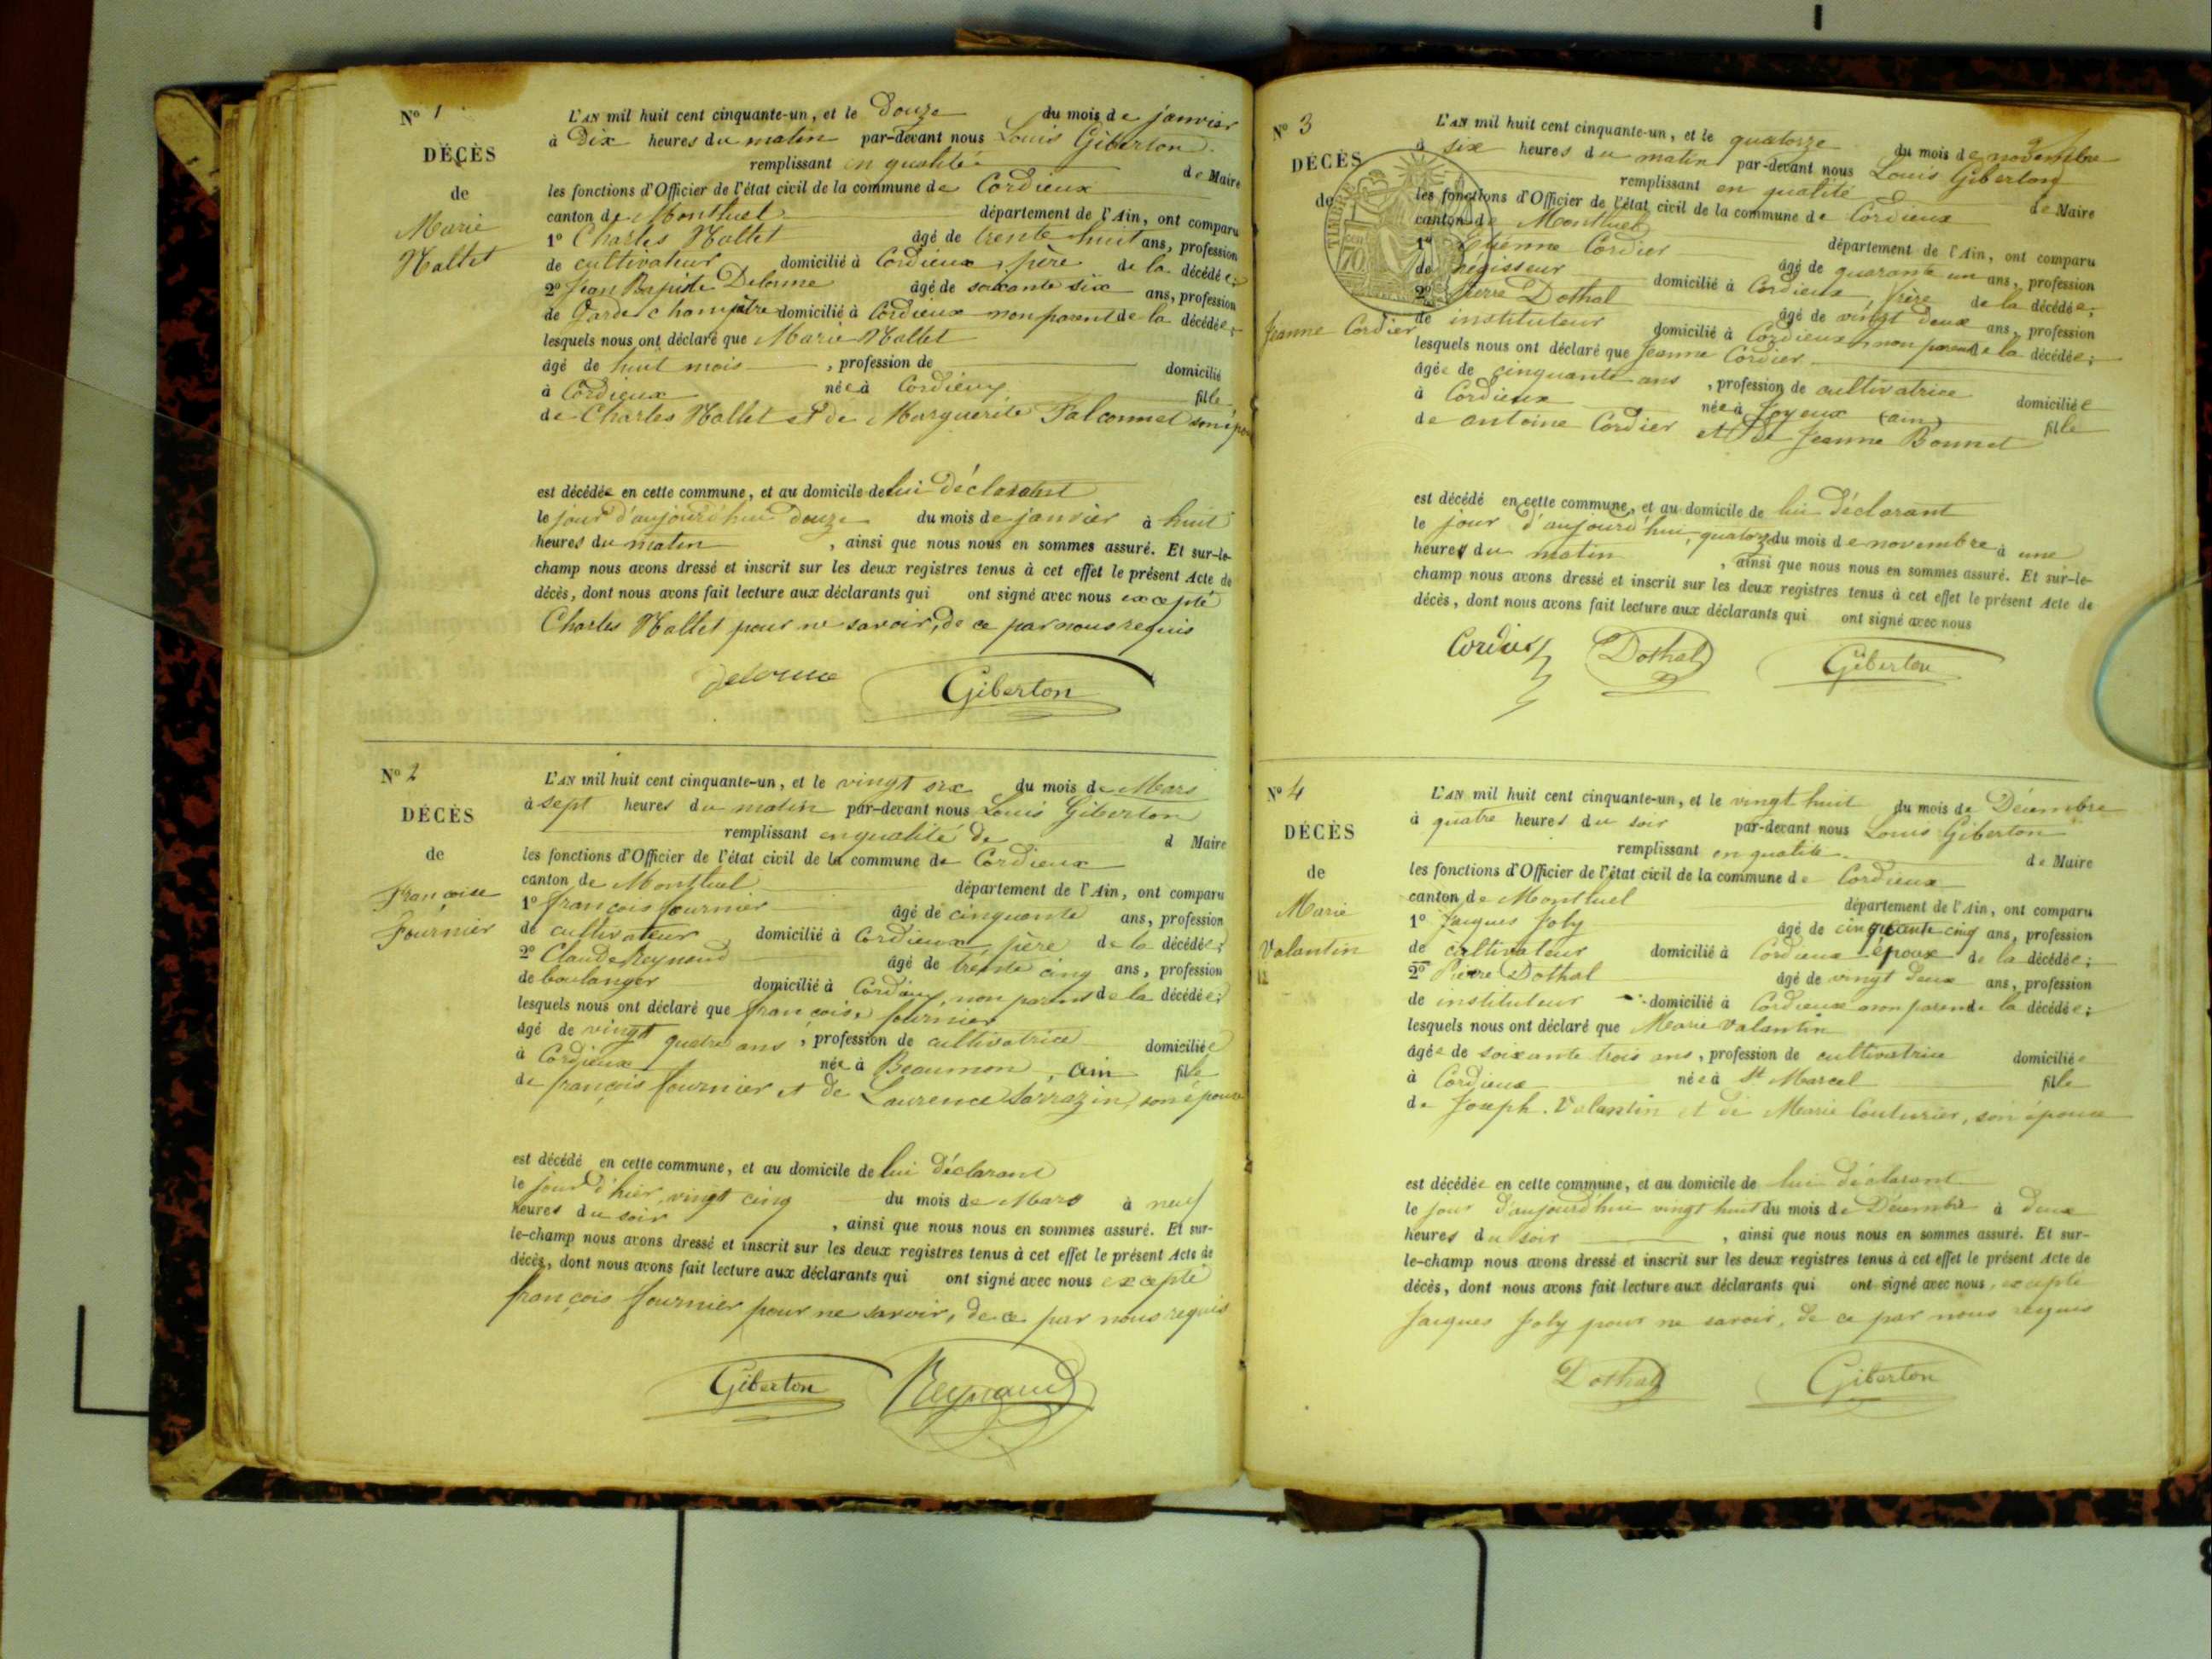 Nº 1
DÉCÈS
de
Marie
Mallet
L'AN mil huit cent cinquante-un, et le Douze du mois de janvier
à Dix heures du matin par-devant nous Louis Giberton
remplissant en qualité de Maire
les fonctions d'Officier de l'état civil de la commune de Cordieux
canton de Montluel département de l'Ain, ont comparu
1º Charles Mallet âgé de trente huit ans, profession
de cultivateur domicilié à Cordieux, père de la décédée;
2º Jean Bapiste Delorme âgé de soixante six ans, profession
de Garde champêtre domicilié à Cordieux non parent de la décédée;
lesquels nous ont déclaré que Marie Mallet
âgé de huit mois, profession de domicilié
à Cordieux née à Cordieux fille
de Charles Mallet et de Marguerite Falconnet son
est décédée en cette commune, et au domicile de lui déclarant
le jour d'aujourd'hui douze du mois de janvier à huit
heures du matin, ainsi que nous nous en sommes assuré. Et sur-le-
champ nous avons dressé et inscrit sur les deux registres tenus à cet effet le présent Acte de
décès, dont nous avons fait lecture aux déclarants qui ont signé avec nous excepté
Charles Mallet pour ne savoir, de ce par nous requis
delorme Giberton
Nº 2
DÉCÈS
de
Françoise
Fournier
L'AN mil huit cent cinquante-un, et le vingt six du mois de Mars
à sept heures du matin par-devant nous Louis Giberton
remplissant en qualité de d Maire
les fonctions d'Officier de l'état civil de la commune de Cordieux
canton de Montluel département de l'Ain, ont comparu
1º françois fournier âgé de cinquante ans, profession
de cultivateur domicilié à Cordieux, père de la décédée;
2º Claude Reynaud âgé de trente cinq ans, profession
de boulanger domicilié à Cordieux, non parent de la décédée;
lesquels nous ont déclaré que françoise fournier
âgé de vingt quatre ans, profession de cultivatrice domiciliée
à Cordieux née à Beaumon, ain fille
de françois fournier et de Laurence Sarrazin, son épouse
est décédé en cette commune, et au domicile de lui déclarant
le jour d'hier, vingt cinq du mois de Mars à neuf
heures du soir, ainsi que nous nous en sommes assuré. Et sur-
le-champ nous avons dressé et inscrit sur les deux registres tenus à cet effet le présent Acte de
décès, dont nous avons fait lecture aux déclarants qui ont signé avec nous excepté
françois fournier pour ne savoir, de ce par nous requis
Giberton Reynaud
Nº 3
DÉCÈS
de
Jeanne Cordier
TIMBRE
L'AN mil huit cent cinquante-un, et le quatorze du mois de novembre
à six heures du matin par-devant nous Louis Giberton
remplissant en qualité de Maire
les fonctions d'Officier de l'état civil de la commune de Cordieux
canton de Montluel département de l'Ain, ont comparu
1º Etienne Cordier âgé de quarante un ans, profession
de régisseur domicilié à Cordieux, frère de la décédée;
2º Pierre Dothal âgé de vingt deux ans, profession
de instituteur domicilié à Cordieux non parent de la décédée;
lesquels nous ont déclaré que Jeanne Cordier
âgée de cinquante ans, profession de cultivatrice domiciliée
à Cordieux née à Joyeux (ain) fille
de antoine Cordier et de Jeanne Bonnet
est décédé en cette commune, et au domicile de lui déclarant
le jour d'aujourd'hui, quatorze du mois de novembre à une
heures du matin, ainsi que nous nous en sommes assuré. Et sur-le-
champ nous avons dressé et inscrit sur les deux registres tenus à cet effet le présent Acte de
décès, dont nous avons fait lecture aux déclarants qui ont signé avec nous
Cordier Dothal Giberton
Nº 4
DÉCÈS
de
Marie
Valantin
L'AN mil huit cent cinquante-un, et le vingt huit du mois de Décembre
à quatre heures du soir par-devant nous Louis Giberton
remplissant en qualité de Maire
les fonctions d'Officier de l'état civil de la commune de Cordieux
canton de Montluel département de l'Ain, ont comparu
1º Jacques Joly âgé de cinquante cinq ans, profession
de cultivateur domicilié à Cordieux époux de la décédée;
2º Pierre Dothal âgé de vingt deux ans, profession
de instituteur domicilié à Cordieux non parent de la décédée;
lesquels nous ont déclaré que Marie Valantin
âgée de soixante trois ans, profession de cultivatrice domiciliée
à Cordieux née à St Marcel fille
de Joseph Valantin et de Marie Couturier, son épouse
est décédée en cette commune, et au domicile de lui déclarant
le jour d'aujourd'hui vingt huit du mois de Décembre à deux
heures du soir, ainsi que nous nous en sommes assuré. Et sur-
le-champ nous avons dressé et inscrit sur les deux registres tenus à cet effet le présent Acte de
décès, dont nous avons fait lecture aux déclarants qui ont signé avec nous, excepté
Jacques Joly pour ne savoir, de ce par nous requis
Dothal Giberton